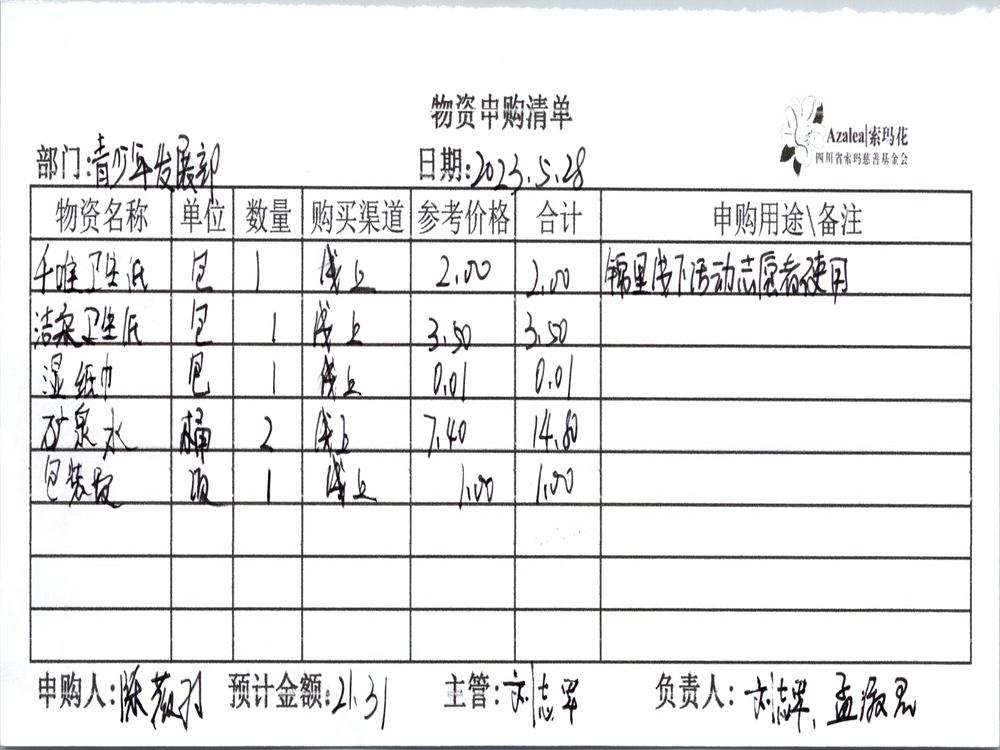 物资申购清单
Azalea|索玛花
四川省索玛慈善基金会
部门:青少年发展部 日期:2023.5.28
物资名称 单位 数量 购买渠道 参考价格 合计 申购用途\备注
卫生纸 包 1 线上 2.00 2.00 活动志愿者使用
洁柔卫生纸 包 1 线上 3.50 3.50
湿纸巾 包 1 线上 0.01 0.01
矿泉水 桶 2 线上 7.40 14.80
包装袋 1 线上 1.00 1.00
申购人: 预计金额:21.31 主管:刘志军 负责人:刘志军、孟